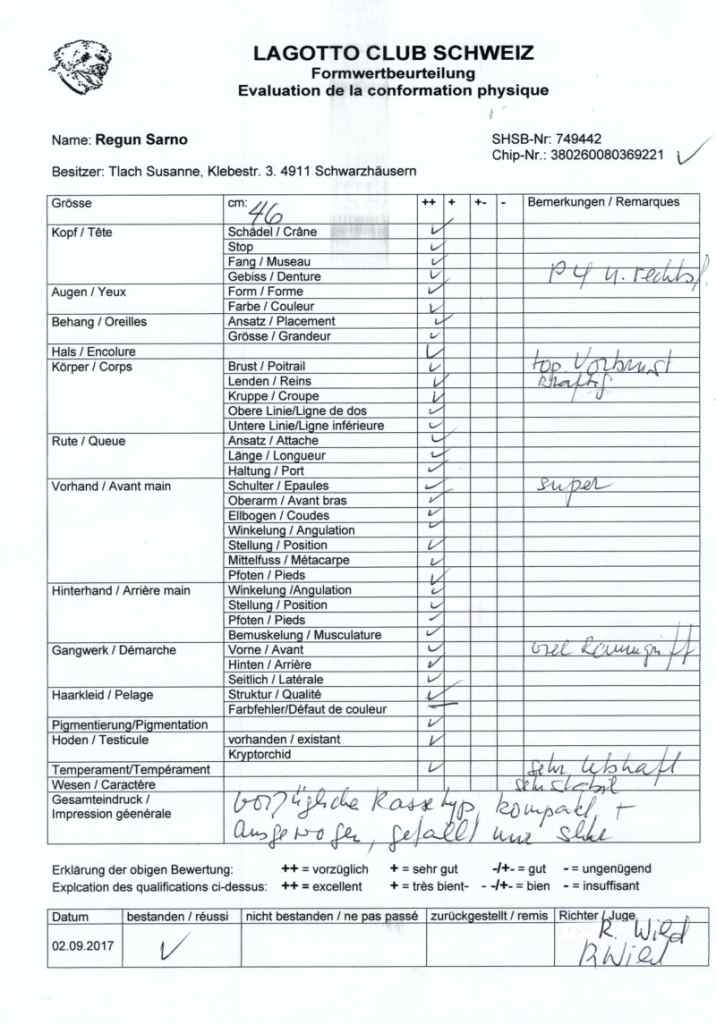 LAGOTTO CLUB SCHWEIZ
Formwertbeurteilung
Evaluation de la conformation physique
Name: Regun Sarno SHSB-Nr: 749442
Chip-Nr.: 380260080369221 ✓
Besitzer: Tlach Susanne, Klebestr. 3. 4911 Schwarzhäusern
Grösse cm: 46 ++ + +- - Bemerkungen / Remarques
Kopf / Tête Schädel / Crâne ✓
Stop ✓
Fang / Museau ✓
Gebiss / Denture ✓ P4 u. rechts
Augen / Yeux Form / Forme ✓
Farbe / Couleur ✓
Behang / Oreilles Ansatz / Placement ✓
Grösse / Grandeur ✓
Hals / Encolure ✓
Körper / Corps Brust / Poitrail ✓ top Vorbrust
Lenden / Reins ✓ kräftig
Kruppe / Croupe ✓
Obere Linie/Ligne de dos ✓
Untere Linie/Ligne inférieure ✓
Rute / Queue Ansatz / Attache ✓
Länge / Longueur ✓
Haltung / Port ✓
Vorhand / Avant main Schulter / Epaules ✓ super
Oberarm / Avant bras ✓
Ellbogen / Coudes ✓
Winkelung / Angulation
Stellung / Position ✓
Mittelfuss / Métacarpe ✓
Pfoten / Pieds ✓
Hinterhand / Arrière main Winkelung /Angulation ✓
Stellung / Position ✓
Pfoten / Pieds ✓
Bemuskelung / Musculature ✓
Gangwerk / Démarche Vorne / Avant ✓ viel Raumgriff
Hinten / Arrière ✓
Seitlich / Latérale ✓
Haarkleid / Pelage Struktur / Qualité ✓
Farbfehler/Défaut de couleur —
Pigmentierung/Pigmentation ✓
Hoden / Testicule vorhanden / existant ✓
Kryptorchid
Temperament/Tempérament ✓ sehr lebhaft
Wesen / Caractère sehr stabil
Gesamteindruck / vorzügliche Rassetyp, kompakt +
Impression géenérale Ausgewogen, gefällt mir sehr
Erklärung der obigen Bewertung: ++ = vorzüglich + = sehr gut -/+- = gut - = ungenügend
Explcation des qualifications ci-dessus: ++ = excellent + = très bient- - -/+- = bien - = insuffisant
Datum bestanden / réussi nicht bestanden / ne pas passé zurückgestellt / remis Richter / Juge
02.09.2017 ✓ R. Wild
RWild